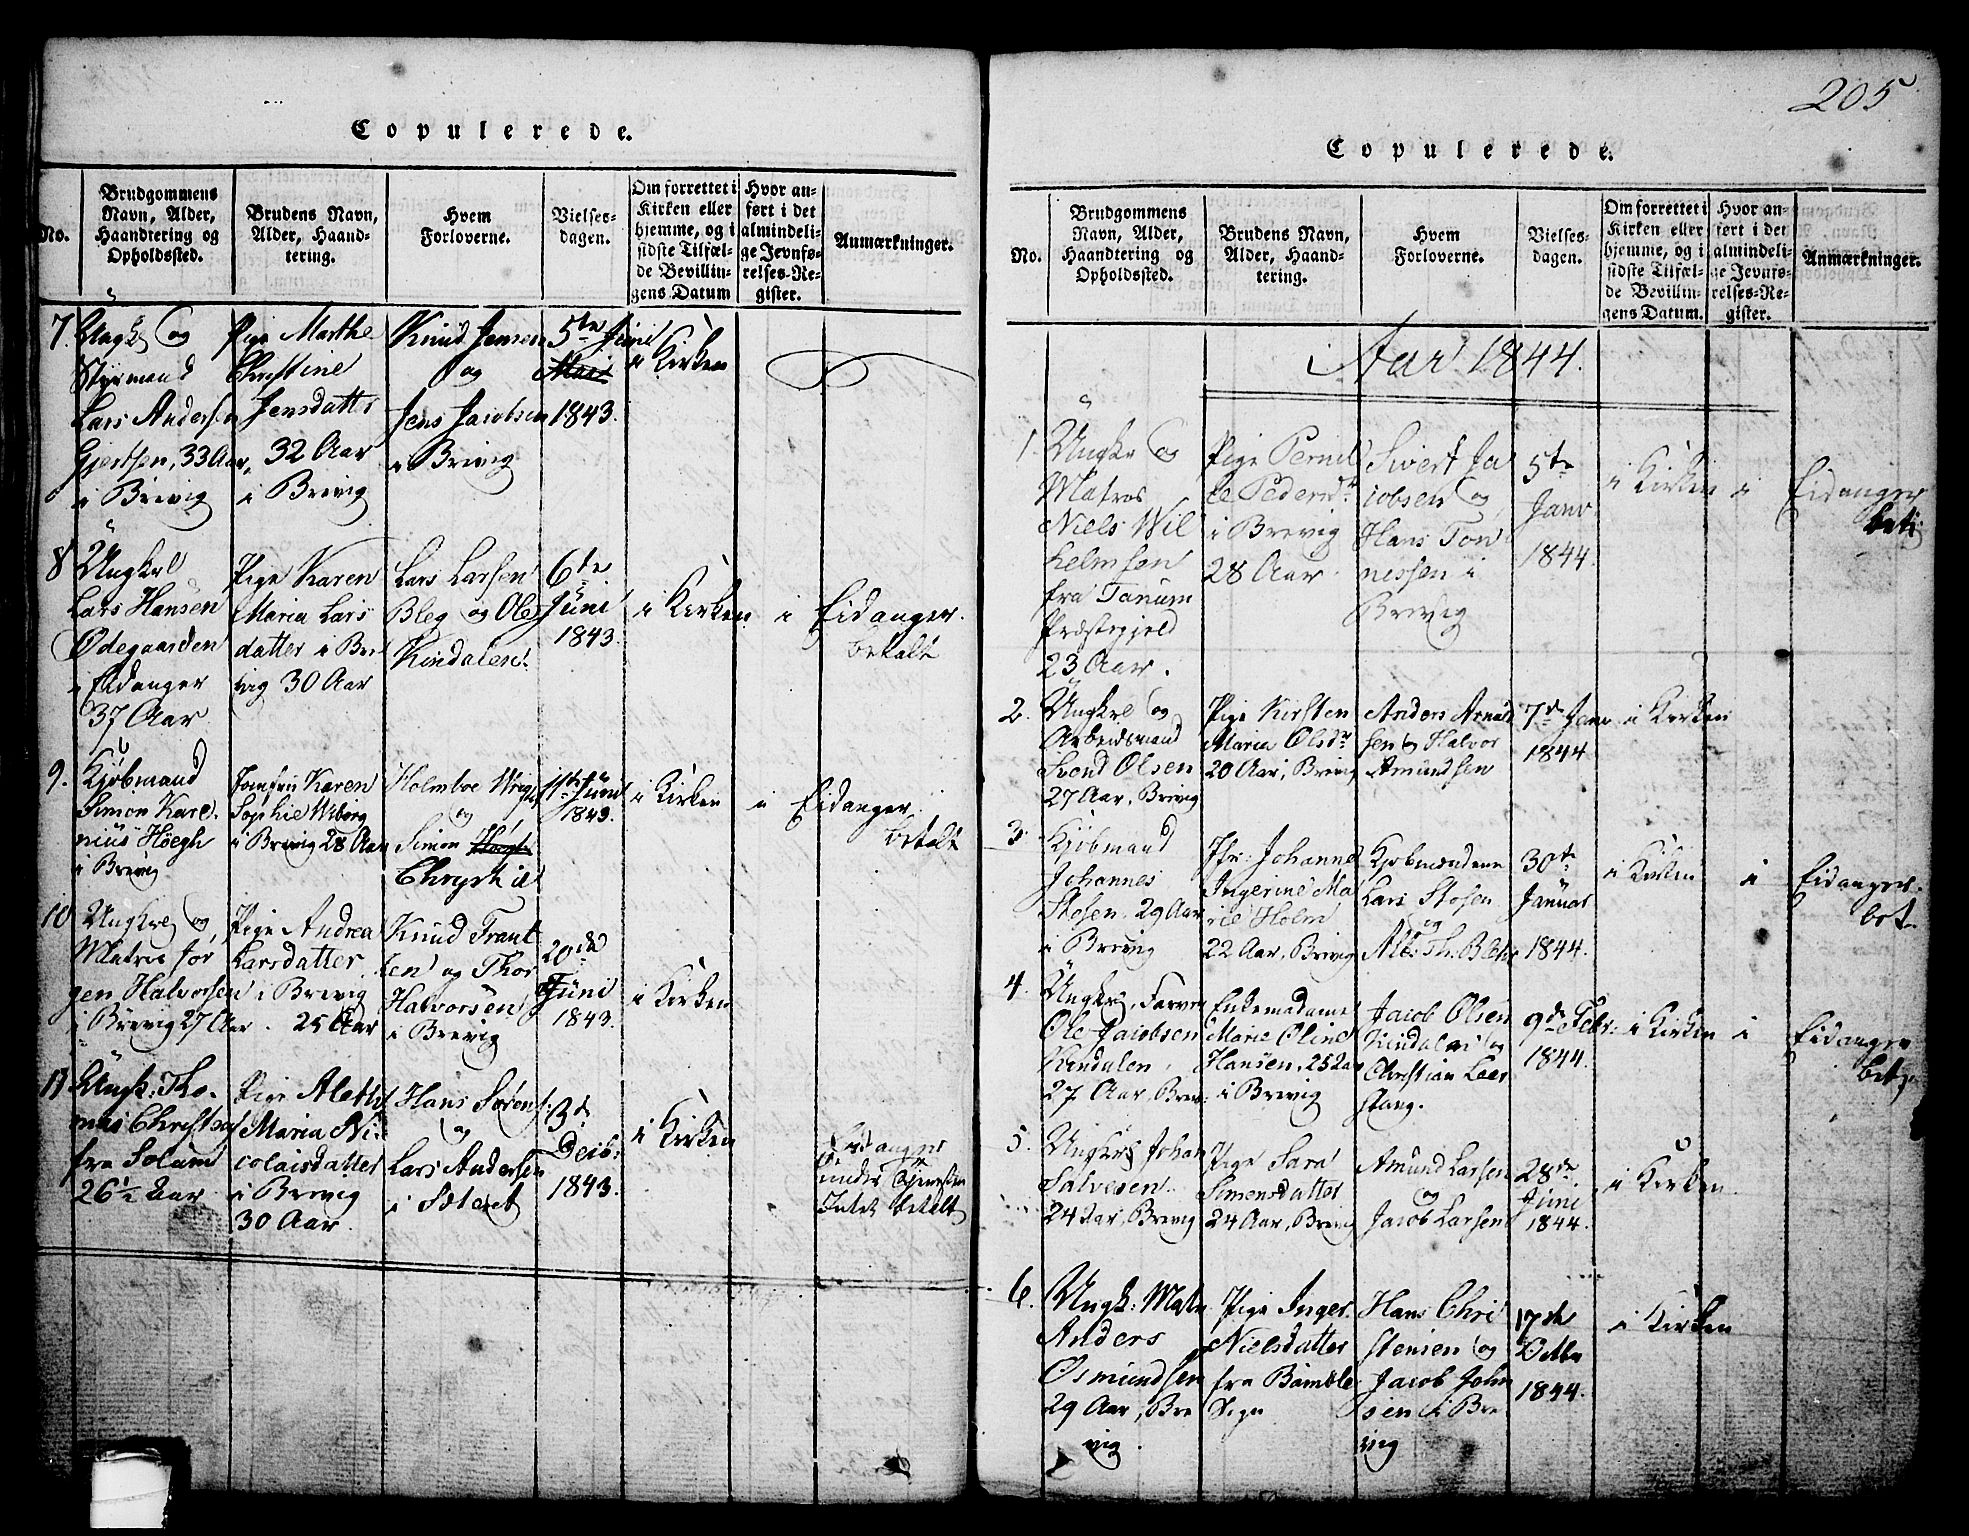 Copulerede.
No.
Brudgommens
Navn, Alder,
Haandtering og
Opholdssted.
Brudens Navn,
Alder, Haand-
tering.
Hvem
Forloverne.
Vielses-
dagen.
Om forrettet i
Kirken eller
hjemme, og i
sidste Tilfæl-
de Bevillin-
gens Datum
Hvor an-
ført i det
almindeli-
ge Jevnfø-
relses-Re-
gister.
Anmærkninger.
7.
Ungk. og
Styrmand
Lars Andersen
Gjertsen, 33 Aar,
i Brevig
Pige Marthe
Christine
Jensdatter
32 Aar
i Brevig
Knud Jensen
og
Jens Jacobsen
i Brevig
5te Juni
Mai
1843.
i Kirken
8
Ungkrl
Lars Hansen
Ødegaarden
i Eidanger
37 Aar
Pige Karen
Maria Lars
datter i Bre
vig 30 Aar
Lars Larsen
Bleg og Ole
Kindalen.
6te
Juni
1843.
i Kirken
i
Eidanger.
betalt
9.
Kjøbmand
Simon Kare
nius Høegh
i Brevig
Jomfru Karen
Sophie Wiborg
i Brevig 28 Aar
Holmboe
og
Simon Høegh
11te Juni
1843.
i Kirken
i
Eidanger.
betalt
10
Ungkrl og
Matros Jør
gen Halvorsen
i Brevig 27 Aar
Pige Andrea
Larsdatter
i Brevig
25 Aar
Knud Trant
sen og Thor
Halvorsen
i Brevig
20de
Juni
1843.
i Kirken
11
Ungk: Tho-
mas Christens
fra Solum
26½ Aar
Pige Aleth
Maria Ni-
colaisdatter
i Brevig
30 Aar
Hans Sørens.
og
Lars Andersen
i Sæteret
3d
Decb:
1843.
i Kirken
Eidanger
under
Intet betalt
205
Copulerede.
No.
Brudgommens
Navn, Alder,
Haandtering og
Opholdssted.
Brudens Navn,
Alder, Haand-
tering.
Hvem
Forloverne.
Vielses-
dagen.
Om forrettet i
Kirken eller
hjemme, og i
sidste Tilfæl-
de Bevillin-
gens Datum.
Hvor an-
ført i det
almindeli-
ge Jevnfø-
relses-Re-
gister.
Anmærkninger.
Aar 1844.
1.
Ungkr og
Matros
Niels Wil
helmsen
fra Tanum
Præstegjeld
23 Aar.
Pige Pernil
le Pedersdr
i Brevig
28 Aar.
Sivert Ja
cobsen og
Hans Ton
nessen i
Brevig
5te
Janv
1844.
i Kirken
i
Eidanger
bet:
2.
Ungkrl og
Arbeidsmand
Svend Olsen
27 Aar, Brevig
Pige Kirsten
Maria Olsdr
20 Aar, Brevig
Anders Amund
sen & Halvor
Amundsen
7d Janv
1844.
i Kirken
3
Kjøbmand
Johannes
Stosen. 29 Aar
i Brevig
Jfr: Johanne
Ingerine Ma
rie Holm
22 Aar, Brevig
Kjøbmændene
Lars Stosen
og
Alb. Th. Blehr
30te
Januar
1844.
i Kirken
i
Eidanger.
bet.
4.
Ungkrl, Farver
Ole Jacobsen
Kindalen,
27 Aar, Brev:
Enkemadame
Marie Oline
Hansen, 25 Aar
i Brevig
Jacob Olsen
Kindalen og
Christian Laer
stang.
9de Febr:
1844.
i Kirken
i
Eidanger
bet.
5.
Ungkrl Johan
Salvesen.
24 Aar, Brevig
Pige Sara
Simensdatter
24 Aar, Brevig
Amund Larsen
og
Jacob Larsen
28de
Juni
1844.
i Kirken
6.
Ungk: Matr
Anders
Osmundsen
29 Aar, Bre
vig.
Pige Inger
Nielsdatter
fra Bamble
Sogn
Hans Chri
stensen og
Jacob John
sen i Bre
vig
17de
Octbr
1844.
i Kirken